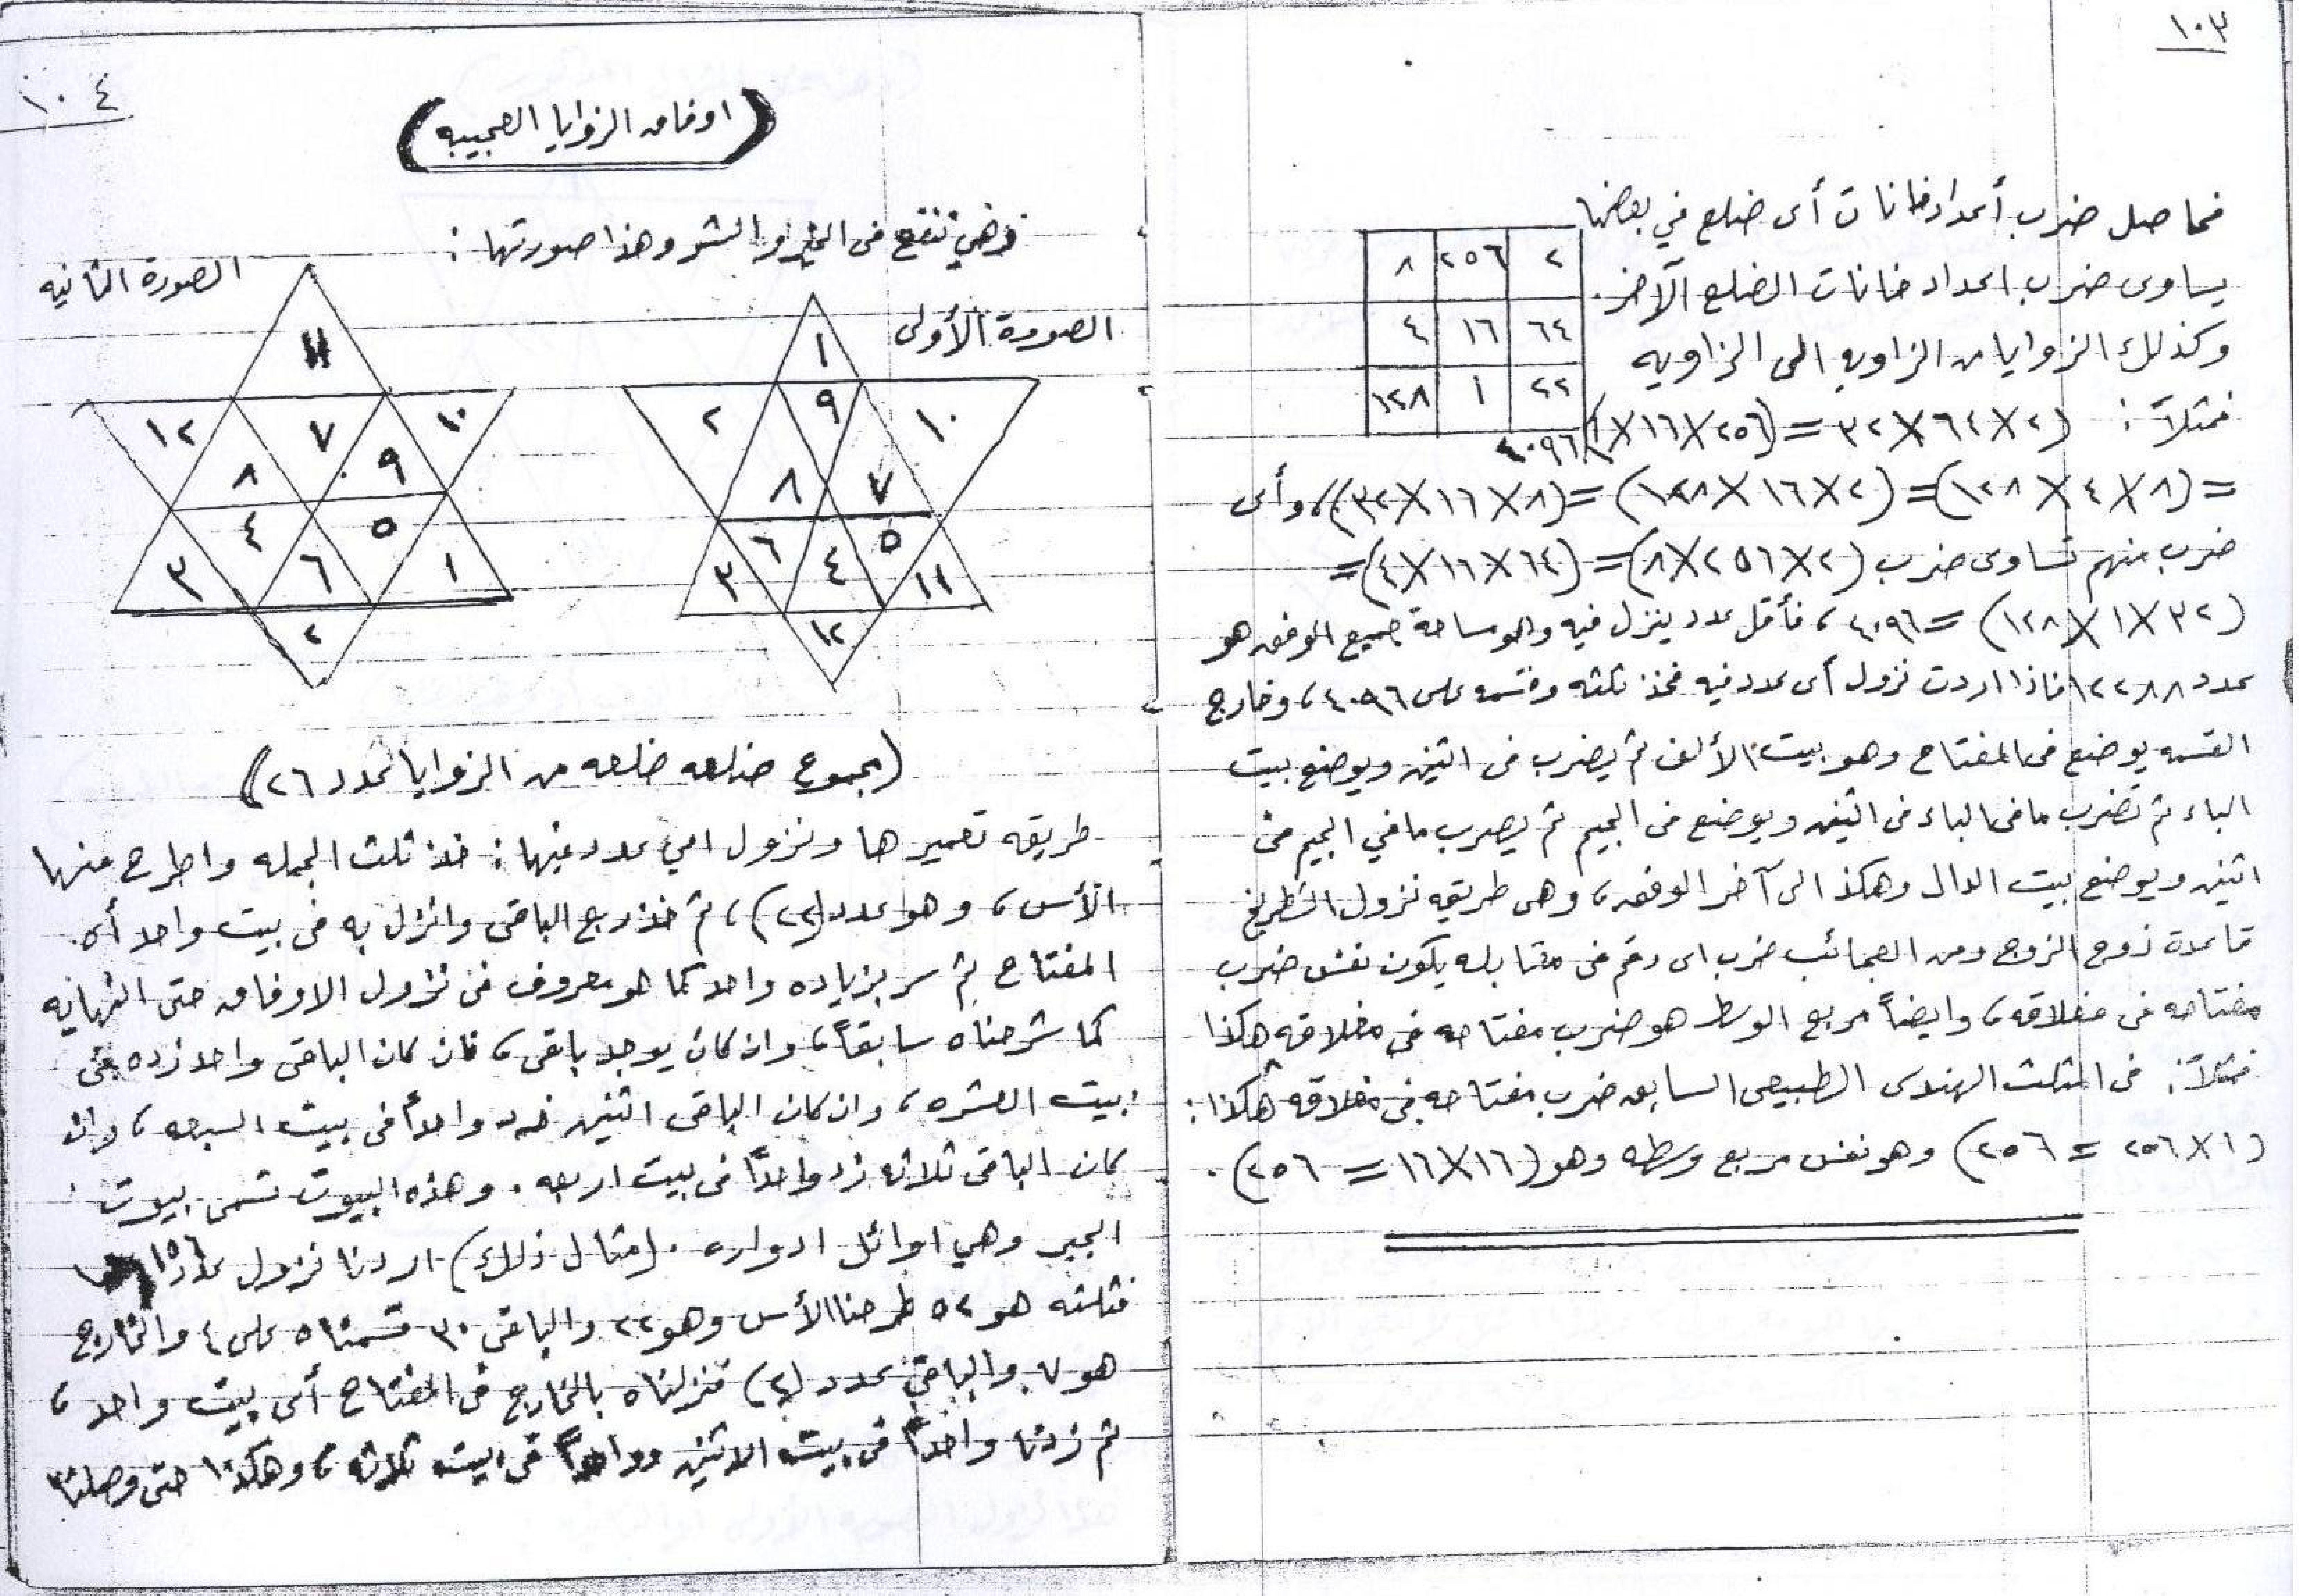 ١٠٣
فحاصل ضرب أعداد خانات أى ضلع في بعضها
يساوى ضرب اعداد خانات الضلع الآخر.
وكذلك الزوايا من الزاويه الى الزاويه
٨ ٢٥٦ ٢
٤ ١٦ ٦٤
١٢٨ ١ ٣٢
فمثلاً: (٢×٦٤×٣٢ = (٢٥٦×١٦×١) ٤٠٩٦
= (٨×٤×١٢٨) = (٢×١٦×١٢٨) = (٨×١٦×٣٢)، وأى
ضرب منهم تساوى ضرب (٢×٢٥٦×٨) = (٦٤×١٦×٤) =
(٣٢×١×١٢٨) = ٤٠٩٦، فأقل عدد ينزل فيه وهو مساحة جميع الوفق هو
عدد ١٢٢٨٨ فاذا اردت نزول أى عدد فيه فخذ ثلثه وقسمه على ٤٠٩٦، وخارج
القسمه يوضع فى المفتاح وهو بيت الألف ثم يضرب فى اثنين ويوضع بيت
الباء ثم تضرب ما فى الباء فى اثنين ويوضع فى الجيم ثم يصرب ما في الجيم فى
اثنين ويوضع بيت الدال وهكذ الى آخر الوفق، وهى طريقه نزول الشطرنج
قاعدة زوج الزوج ومن العجائب ضرب اى رقم فى مقابله يكون نفس ضرب
مفتاحه فى مغلاقه، وايضاً مربع الوسط هو ضرب مفتاحه في مغلاقه هكذا
فمثلاً: فى المثلث الهندى الطبيعى السابق ضرب مفتاحه فى مغلاقه هكذا:
(١×٢٥٦ = ٢٥٦) وهو نفس مربع وسطه وهو (١٦×١٦ = ٢٥٦).
١٠٤
(اوفاق الزوايا العجيبه)
فهي تنفع فى الخير والشر وهذا صورتها:
الصورة الأولى
١
٢ ٩ ١٠
٨ ٧
٦ ٥
٣ ٤ ١١
١٢
الصورة الثانيه
١١
١٢ ٧ ١٠
٨ ٩
٤ ٥
٣ ٦ ١
٢
(مجموع ضلعه ضلعه من الزوايا عدد ٢٦)
طريقه تعميرها ونزول اي عدد فيها: خذ ثلث الجمله واطرح منها
الأس، وهو عدد (٢٢)، ثم خذ ربع الباقى وانزل به فى بيت واحد أى
المفتاح ثم سر بزياده واحد كما هو معروف فى نزول الاوفاق حتى النهايه
كما شرحناه سابقاً، وان كان يوجد باقى، فان كان الباقى واحد زده فى
بيت العشره، وان كان الباقى اثنين زد واحداً فى بيت السبعه، وان
كان الباقى ثلاثه زد واحداً فى بيت اربعه. وهذه البيوت تسمى بيوت
الجبر وهي اوائل ادواره. (مثال ذلك) اردنا نزول عدد ١٥٦
فثلثه هو ٥٢ طرحنا الأس وهو ٢٢ والباقى ٣٠ قسمناه على ٤ والخارج
هو ٧ والباقي عدد (٢) فنزلناه بالخارج فى المفتاح أى بيت واحد،
ثم زدنا واحداً فى بيت الاثنين وواحداً فى بيت ثلاثه، وهكذا حتى وصلنا